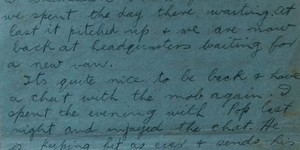 we spent the day there waiting. At
last it pitched up & we are now
back at headquarters waiting for
a new van.
Its quite nice to be back & have
a chat with the mob again. I
spent the evening with Pop last
night and enjoyed the chat. He
is keeping fit as ever & sends his